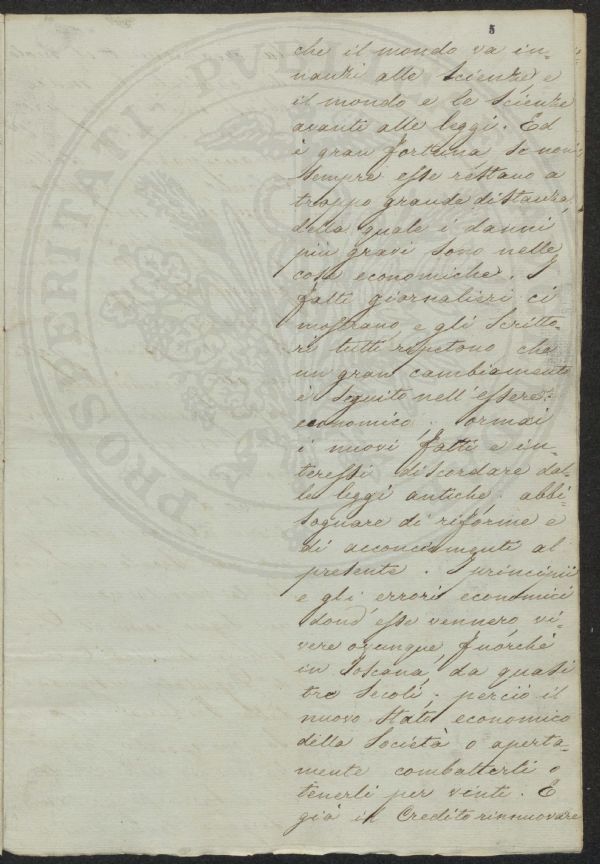 5
che il mondo va in-
nanzi alle scienze, e
il mondo e le scienze
avanti alle leggi. Ed
è gran fortuna se non
sempre esse restano a
troppo grande distanza,
della quale i danni
più gravi sono nelle
cose economiche. I
fatti giornalieri ci
mostrano, e gli scritto-
ri tutti ripetono che
un gran cambiamento
è seguito nell'essere
economico: ormai
i nuovi fatti e in-
teressi discordare dal-
le leggi antiche: abbi-
sognare di riforme e
di acconciamenti al
presente. I principii
e gli errori economici
dond'esse vennero vi-
vere ovunque, fuorchè
in Toscana, da quasi
tre secoli: perciò il
nuovo stato economico
della Società o aperta-
mente combatterli o
tenerli per vinti. E
già il Credito rinnuovare
PROSPERITATI PVBLICAE